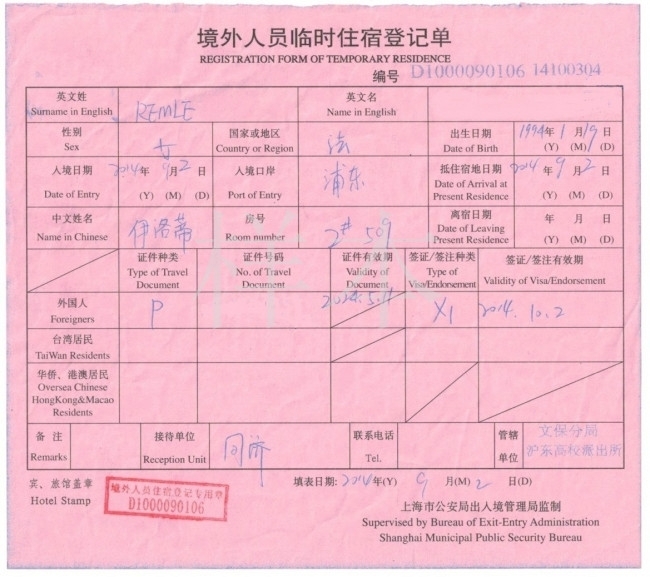 境外人员临时住宿登记单
REGISTRATION FORM OF TEMPORARY RESIDENCE
编号 D1000090106 14100304
英文姓 Surname in English REMLE 英文名 Name in English
性别 Sex 女 国家或地区 Country or Region 法 出生日期 Date of Birth 1994年1月19日 (Y) (M) (D)
入境日期 Date of Entry 2014年9月2日 (Y) (M) (D) 入境口岸 Port of Entry 浦东 抵住宿地日期 Date of Arrival at Present Residence 2014年9月2日 (Y) (M) (D)
中文姓名 Name in Chinese 伊洛蒂 房号 Room number 2# 509 离宿日期 Date of Leaving Present Residence 年 月 日 (Y) (M) (D)
证件种类 Type of Travel Document 证件号码 No. of Travel Document 证件有效期 Validity of Document 签证/签注种类 Type of Visa/Endorsement 签证/签注有效期 Validity of Visa/Endorsement
外国人 Foreigners P X1 2014.10.2
台湾居民 TaiWan Residents
华侨、港澳居民 Oversea Chinese HongKong&Macao Residents
备注 Remarks 接待单位 Reception Unit 同济 联系电话 Tel. 管辖单位 文保分局 沪东高校派出所
宾、旅馆盖章 Hotel Stamp 境外人员住宿登记专用章 D1000090106 填表日期: 2014年(Y) 9月(M) 2日(D)
上海市公安局出入境管理局监制
Supervised by Bureau of Exit-Entry Administration
Shanghai Municipal Public Security Bureau
样本